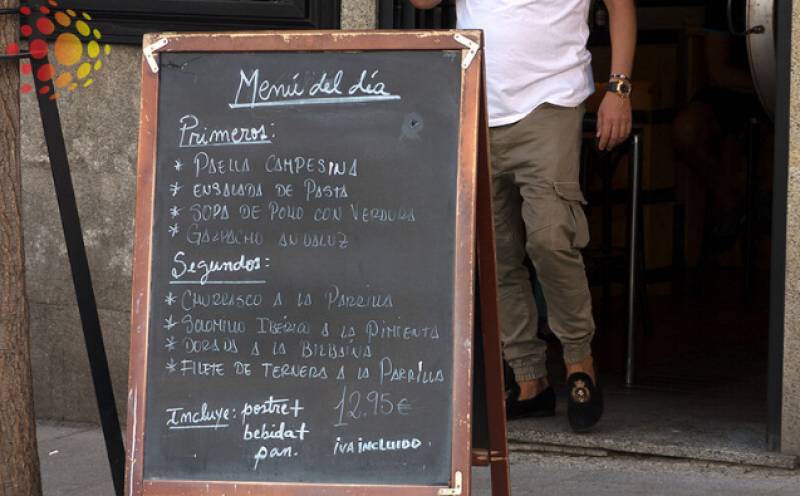 Menú del día
Primeros:
* PAELLA CAMPESINA
* ENSALADA DE PASTA
* SOPA DE POLLO CON VERDURA
* GAZPACHO ANDALUZ
Segundos:
* CHURRASCO A LA PARRILLA
* SOLOMILLO IBÉRICO A LA PIMIENTA
* DORADA A LA BILBAÍNA
* FILETE DE TERNERA A LA PARRILLA
Incluye: postre+ 12.95€
bebida+
pan. IVA INCLUIDO.